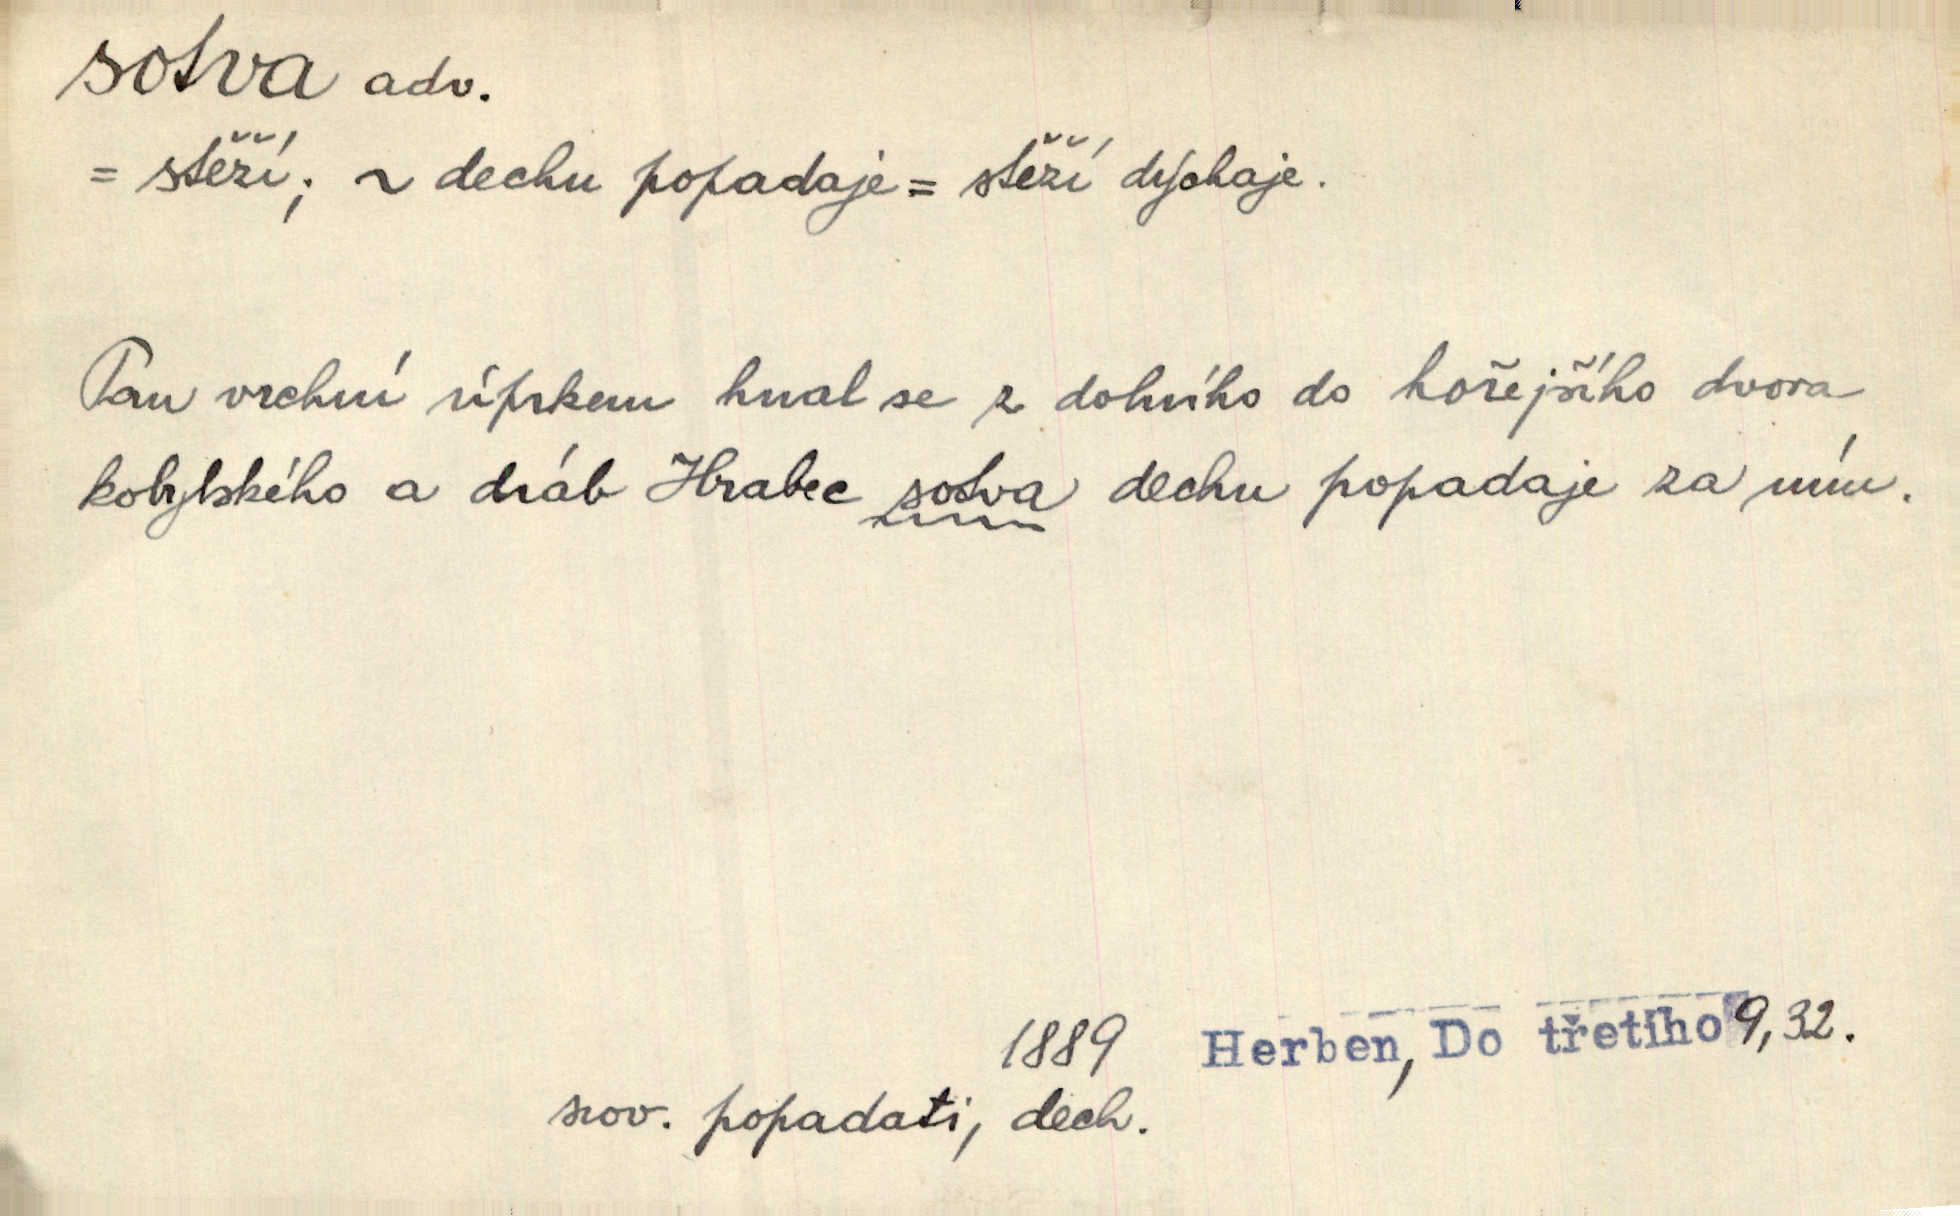 sotva adv.
= stěží; ~ dechu popadaje = stěží dýchaje.
Pan vrchní úprkem hnal se z dolního do hořejšího dvora
kobylského a dráb Hrabec sotva dechu popadaje za ním.
1889 Herben, Do třetího 9,32.
srov. popadati, dech.